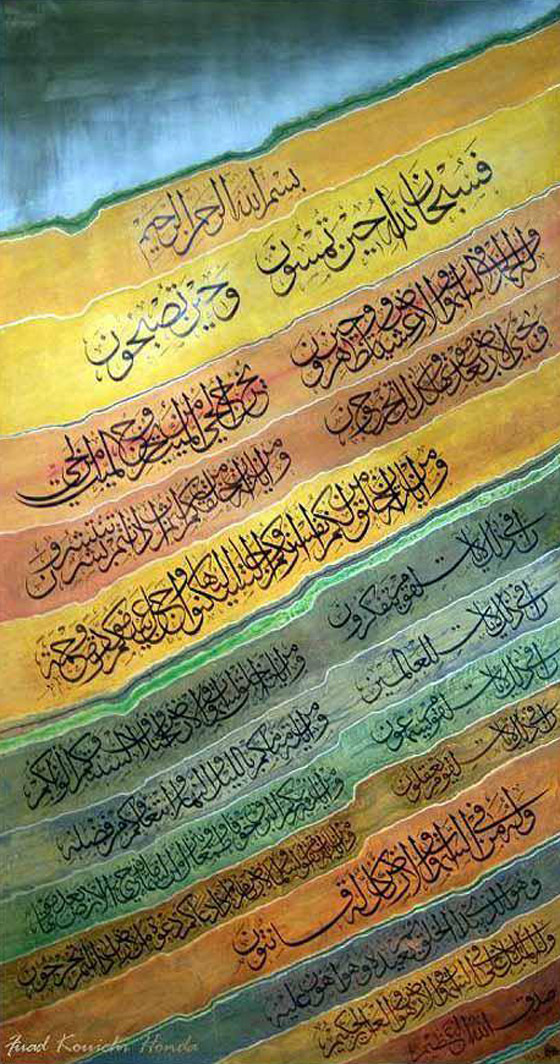 بسم الله الرحمن الرحيم
فسبحان الله حين تمسون
وحين تصبحون
وله الحمد في السموات والأرض وعشيا وحين تظهرون
يخرج الحي من الميت ويخرج الميت من الحي
ويحي الأرض بعد موتها وكذلك تخرجون
ومن آياته أن خلقكم من تراب ثم إذا أنتم بشر تنتشرون
ومن آياته أن خلق لكم من أنفسكم أزواجا لتسكنوا إليها وجعل بينكم مودة ورحمة
إن في ذلك لآيات لقوم يتفكرون
ومن آياته خلق السموات والأرض واختلاف ألسنتكم وألوانكم
إن في ذلك لآيات للعالمين
ومن آياته منامكم بالليل والنهار وابتغاؤكم من فضله
إن في ذلك لآيات لقوم يسمعون
ومن آياته يريكم البرق خوفا وطمعا وينزل من السماء ماء فيحي به الأرض بعد موتها
إن في ذلك لآيات لقوم يعقلون
ومن آياته أن تقوم السماء والأرض بأمره ثم إذا دعاكم دعوة من الأرض إذا أنتم تخرجون
وله من في السموات والأرض كل له قانتون
وهو الذي يبدأ الخلق ثم يعيده وهو أهون عليه
وله المثل الأعلى في السموات والأرض وهو العزيز الحكيم
صدق الله العظيم
Fuad Kouichi Honda